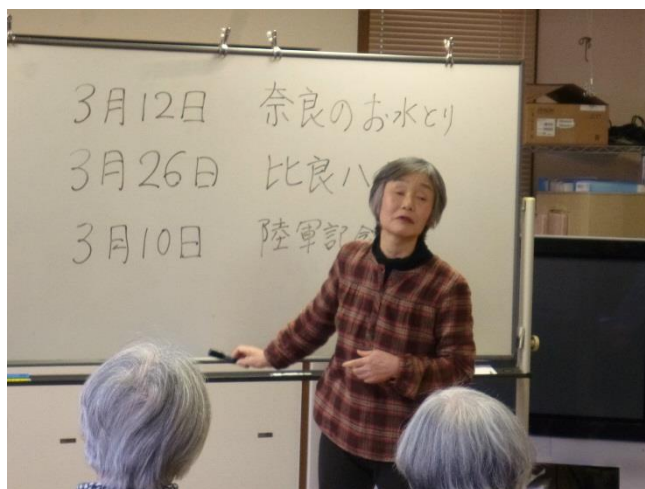 3月12日 奈良のお水とり
3月26日 比良八
3月10日 陸軍記念